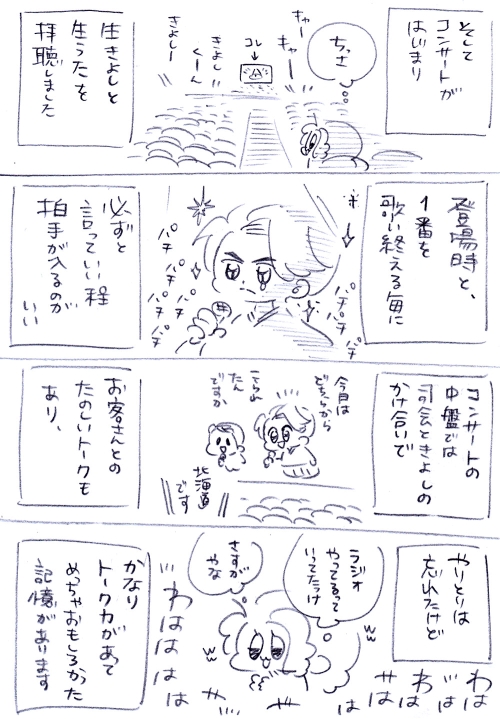 そして
コンサートが
はじまり
ちっさ
キャー
キャー
コレ
きよし
くーん
きよしー
生きよしと
生うたを
拝聴しました
登場時と、
1番を
歌い終える毎に
キ
パチ
パチ
パチ
パチ
パチ
パチ
パチ
パチ
必ずと
言っていい程
拍手が入るのが
いい
コンサートの
中盤では
司会ときよしの
かけ合いで
今日は
どちらから
こられ
たん
ですか
北海道
です
お客さんとの
たのしいトークも
あり、
やりとりは
忘れたけど
ラジオ
やってるって
いってたっけ
さすが
やな
かなり
トーク力があって
めっちゃおもしろかった
記憶があります
わはは
わはは
わははは